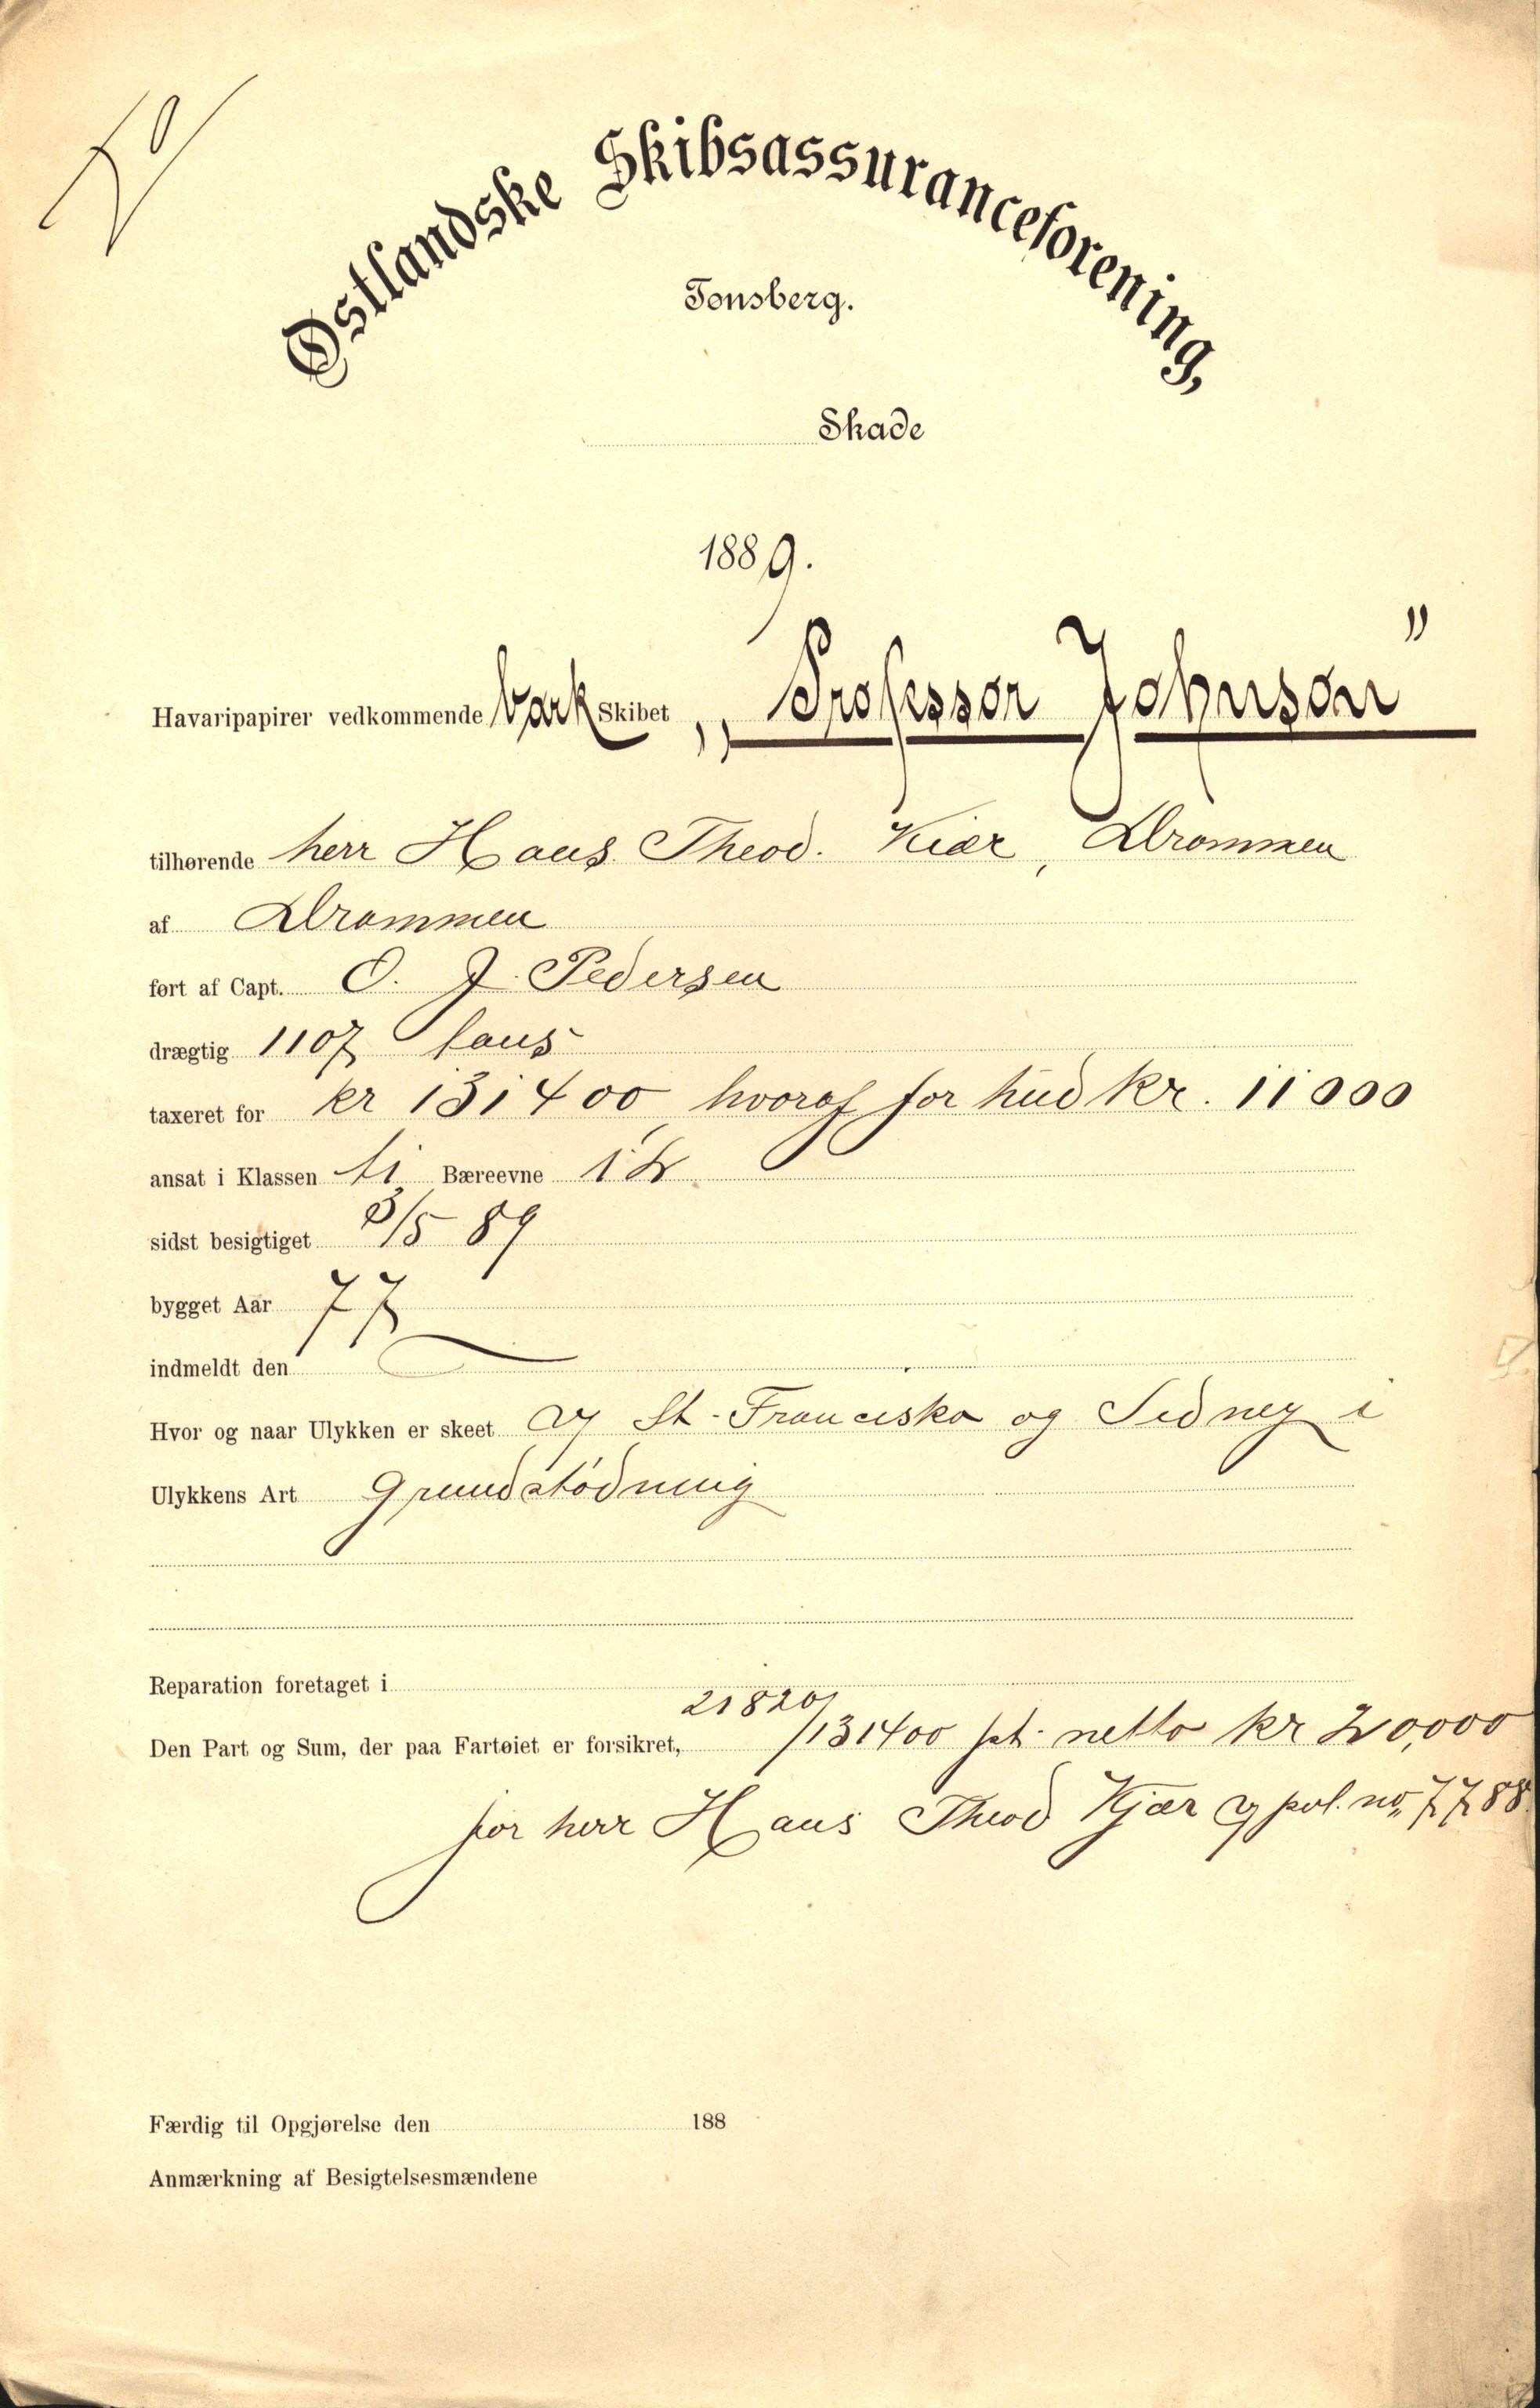 Østlandske Skibsassuranceforening,
Tønsberg.
Skade
1889.
Havaripapirer vedkommende bark Skibet „Professor Johnson"
tilhørende herr Hans Theod. Kiær, Drammen
af Drammen
ført af Capt. O. J. Pedersen
drægtig 1107 tons
taxeret for kr 131400, hvoraf for hud kr. 11000
ansat i Klassen Bæreevne
sidst besigtiget 3/5 89
bygget Aar 77
indmeldt den
Hvor og naar Ulykken er skeet St. Francisko og Sidney i
Ulykkens Art grundstødning
Reparation foretaget i
Den Part og Sum, der paa Fartøiet er forsikret, 21820/131400 pt. netto kr 20,000
for herr Hans Theod Kjær pol. no„ 7788
Færdig til Opgjørelse den 188
Anmærkning af Besigtelsesmændene